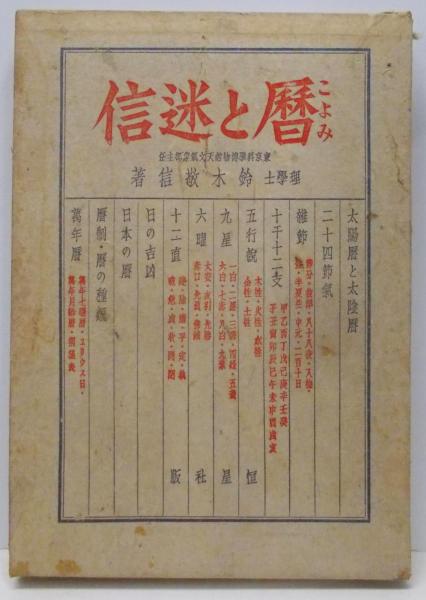 暦と迷信
こよみ
東京科學博物館天文氣象部主任
理學士 鈴木敬信 著
太陽暦と太陰暦
二十四節氣
雜節
節分・彼岸・八十八夜・入梅・
半夏生・中元・二百十日
十干十二支
甲乙丙丁戊己庚辛壬癸
子丑寅卯辰巳午未申酉戌亥
五行説
木性・火性・水性
金性・土性
九星
一白・二黒・三碧・四緑・五黄
六白・七赤・八白・九紫
六曜
大安・友引・先勝
赤口・先負・佛滅
十二直
建・除・滿・平・定・執
破・危・成・收・開・閉
日の吉凶
日本の暦
暦制・暦の種類
萬年暦
萬年七曜暦・ユリウス日・
萬年月齢暦・
恒星社版